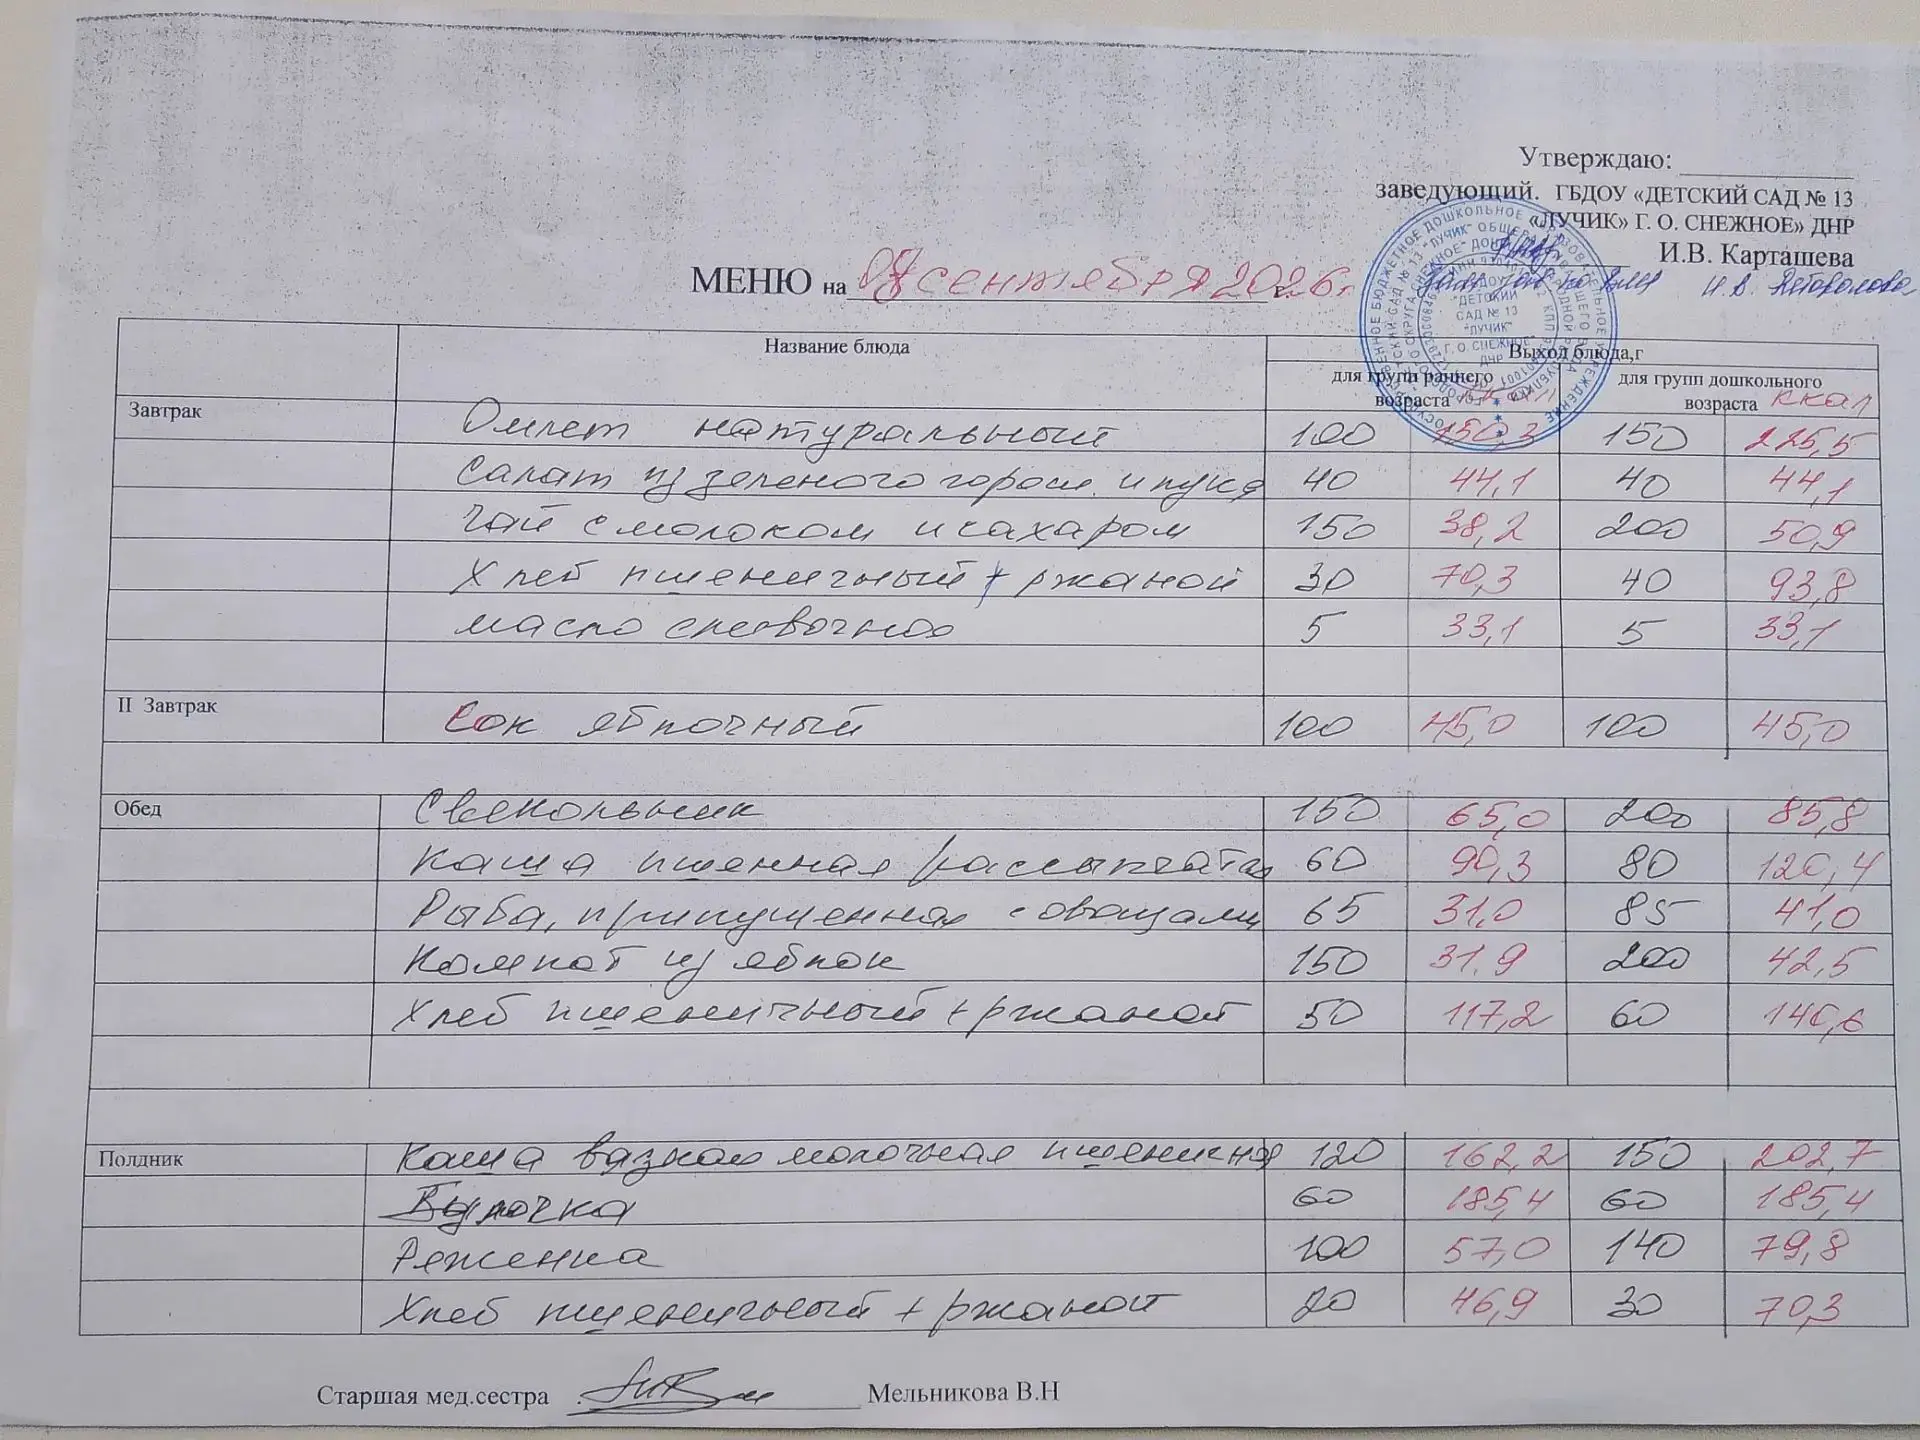 Утверждаю:
заведующий. ГБДОУ «ДЕТСКИЙ САД № 13
«ЛУЧИК» Г. О. СНЕЖНОЕ» ДНР
И.В. Карташева
МЕНЮ на сентября 2026 г.
Название блюда Выход блюда,г
для групп раннего возраста для групп дошкольного возраста ккал
Завтрак Омлет натуральный 100 150,3 150 225,5
Салат из зеленого горош. и лука 40 44,1 40 44,1
Чай с молоком и сахаром 150 38,2 200 50,9
Хлеб пшеничный + ржаной 30 70,3 40 93,8
масло сливочное 5 33,1 5 33,1
II Завтрак Сок яблочный 100 45,0 100 45,0
Обед Свекольник 150 65,0 200 85,8
Каша пшенная рассыпчатая 60 90,3 80 120,4
Рыба, припущенная с овощами 65 31,0 85 41,0
Компот из яблок 150 31.9 200 42,5
Хлеб пшеничный + ржаной 50 117,2 60 140,6
Полдник Каша вязкая молочная пшеничная 120 162,2 150 202,7
Булочка 60 185,4 60 185,4
Ряженка 100 57,0 140 79,8
Хлеб пшеничный + ржаной 20 46,9 30 70,3
Старшая мед.сестра Мельникова В.Н